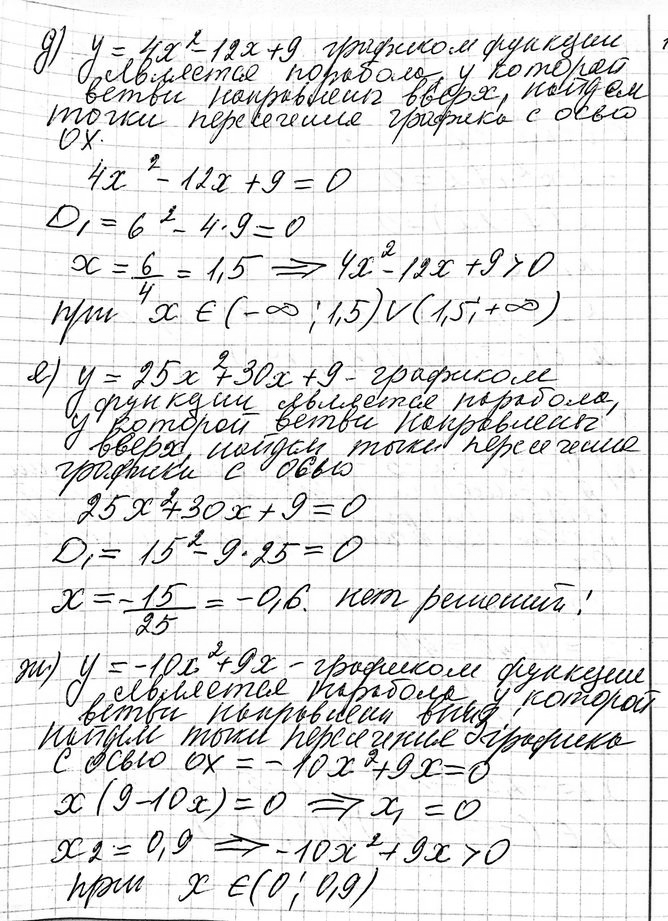 д) y = 4x² - 12x + 9 графиком функции
является парабола, у которой
ветви направлены вверх, найдем
точки пересечения графика с осью
OX.
4x² - 12x + 9 = 0
D₁ = 6² - 4·9 = 0
x = 6/4 = 1,5 ⇒ 4x² - 12x + 9 > 0
при x ∈ (-∞; 1,5) ∨ (1,5; +∞)
е) y = 25x² + 30x + 9 - графиком
функции является парабола,
у которой ветви направлены
вверх, найдем точки пересечения
графики с осью
25x² + 30x + 9 = 0
D₁ = 15² - 9·25 = 0
x = -15/25 = -0,6. нет решений!
ж) y = -10x² + 9x - графиком функции
является парабола у которой
ветви направлены вниз,
найдем точки пересечения графика
с осью OX = -10x² + 9x = 0
x(9-10x) = 0 ⇒ x₁ = 0
x2 = 0,9 ⇒ -10x² + 9x > 0
при x ∈ (0; 0,9)